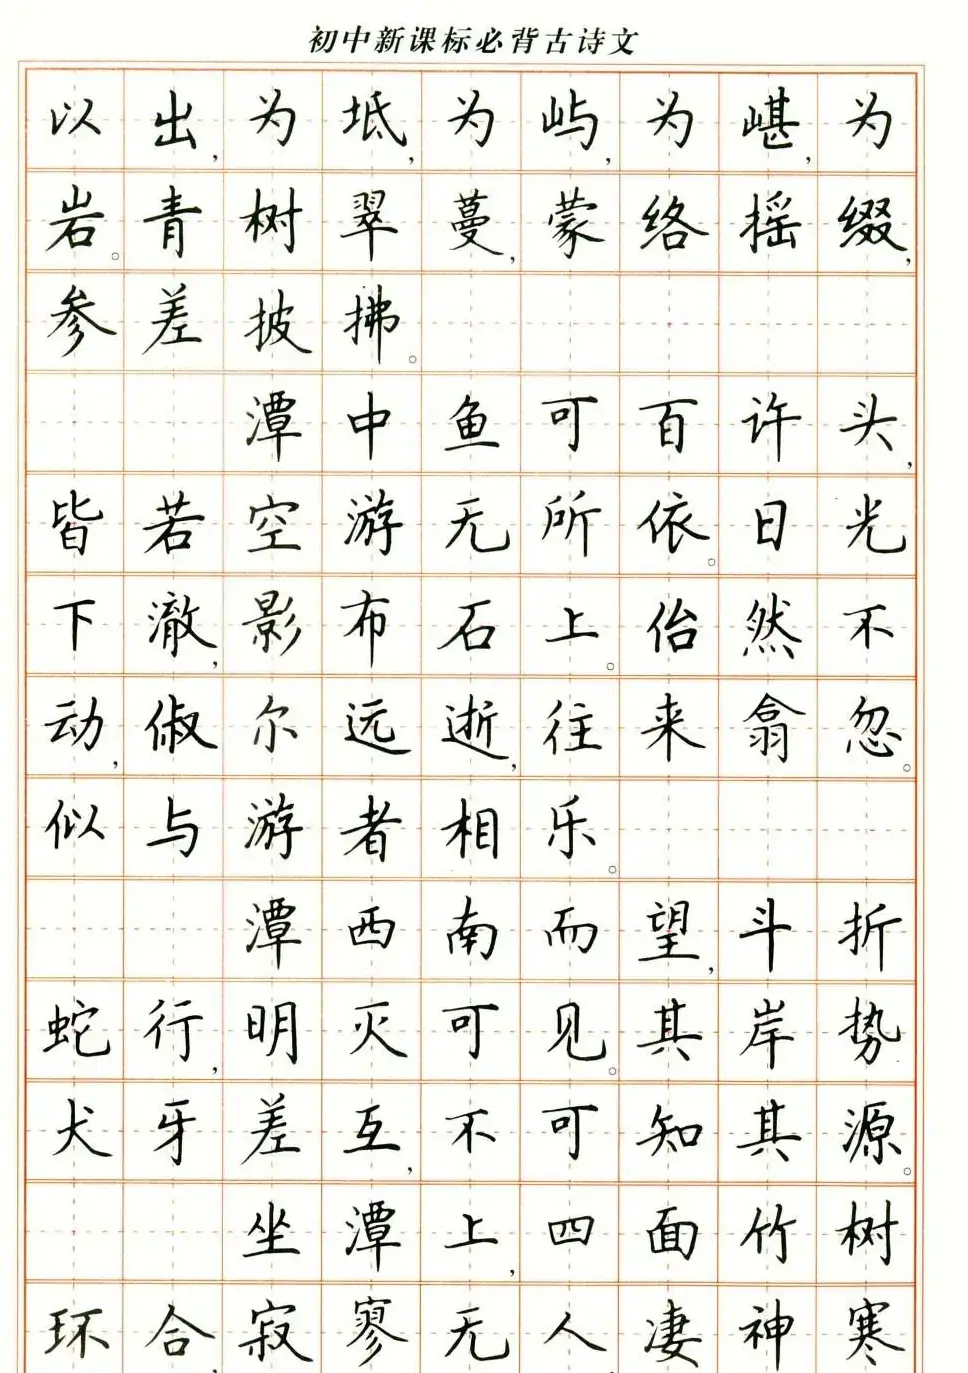 初中新课标必背古诗文
以出，为坻，为屿，为嵁，为
岩。青树翠蔓，蒙络摇缀，
参差披拂。
潭中鱼可百许头，
皆若空游无所依。日光
下澈，影布石上。佁然不
动，俶尔远逝，往来翕忽。
似与游者相乐。
潭西南而望，斗折
蛇行，明灭可见。其岸势
犬牙差互，不可知其源。
坐潭上，四面竹树
环合，寂寥无人，凄神寒